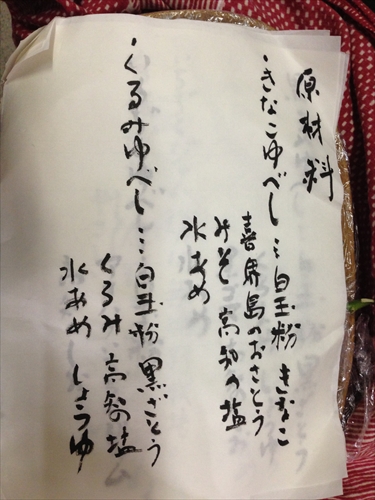 原材料
・きなこゆべし…白玉粉 きなこ
喜界島のおさとう
みそ 高知の塩
水あめ
・くるみゆべし…白玉粉 黒ざとう
くるみ 高知塩
水あめ しょうゆ